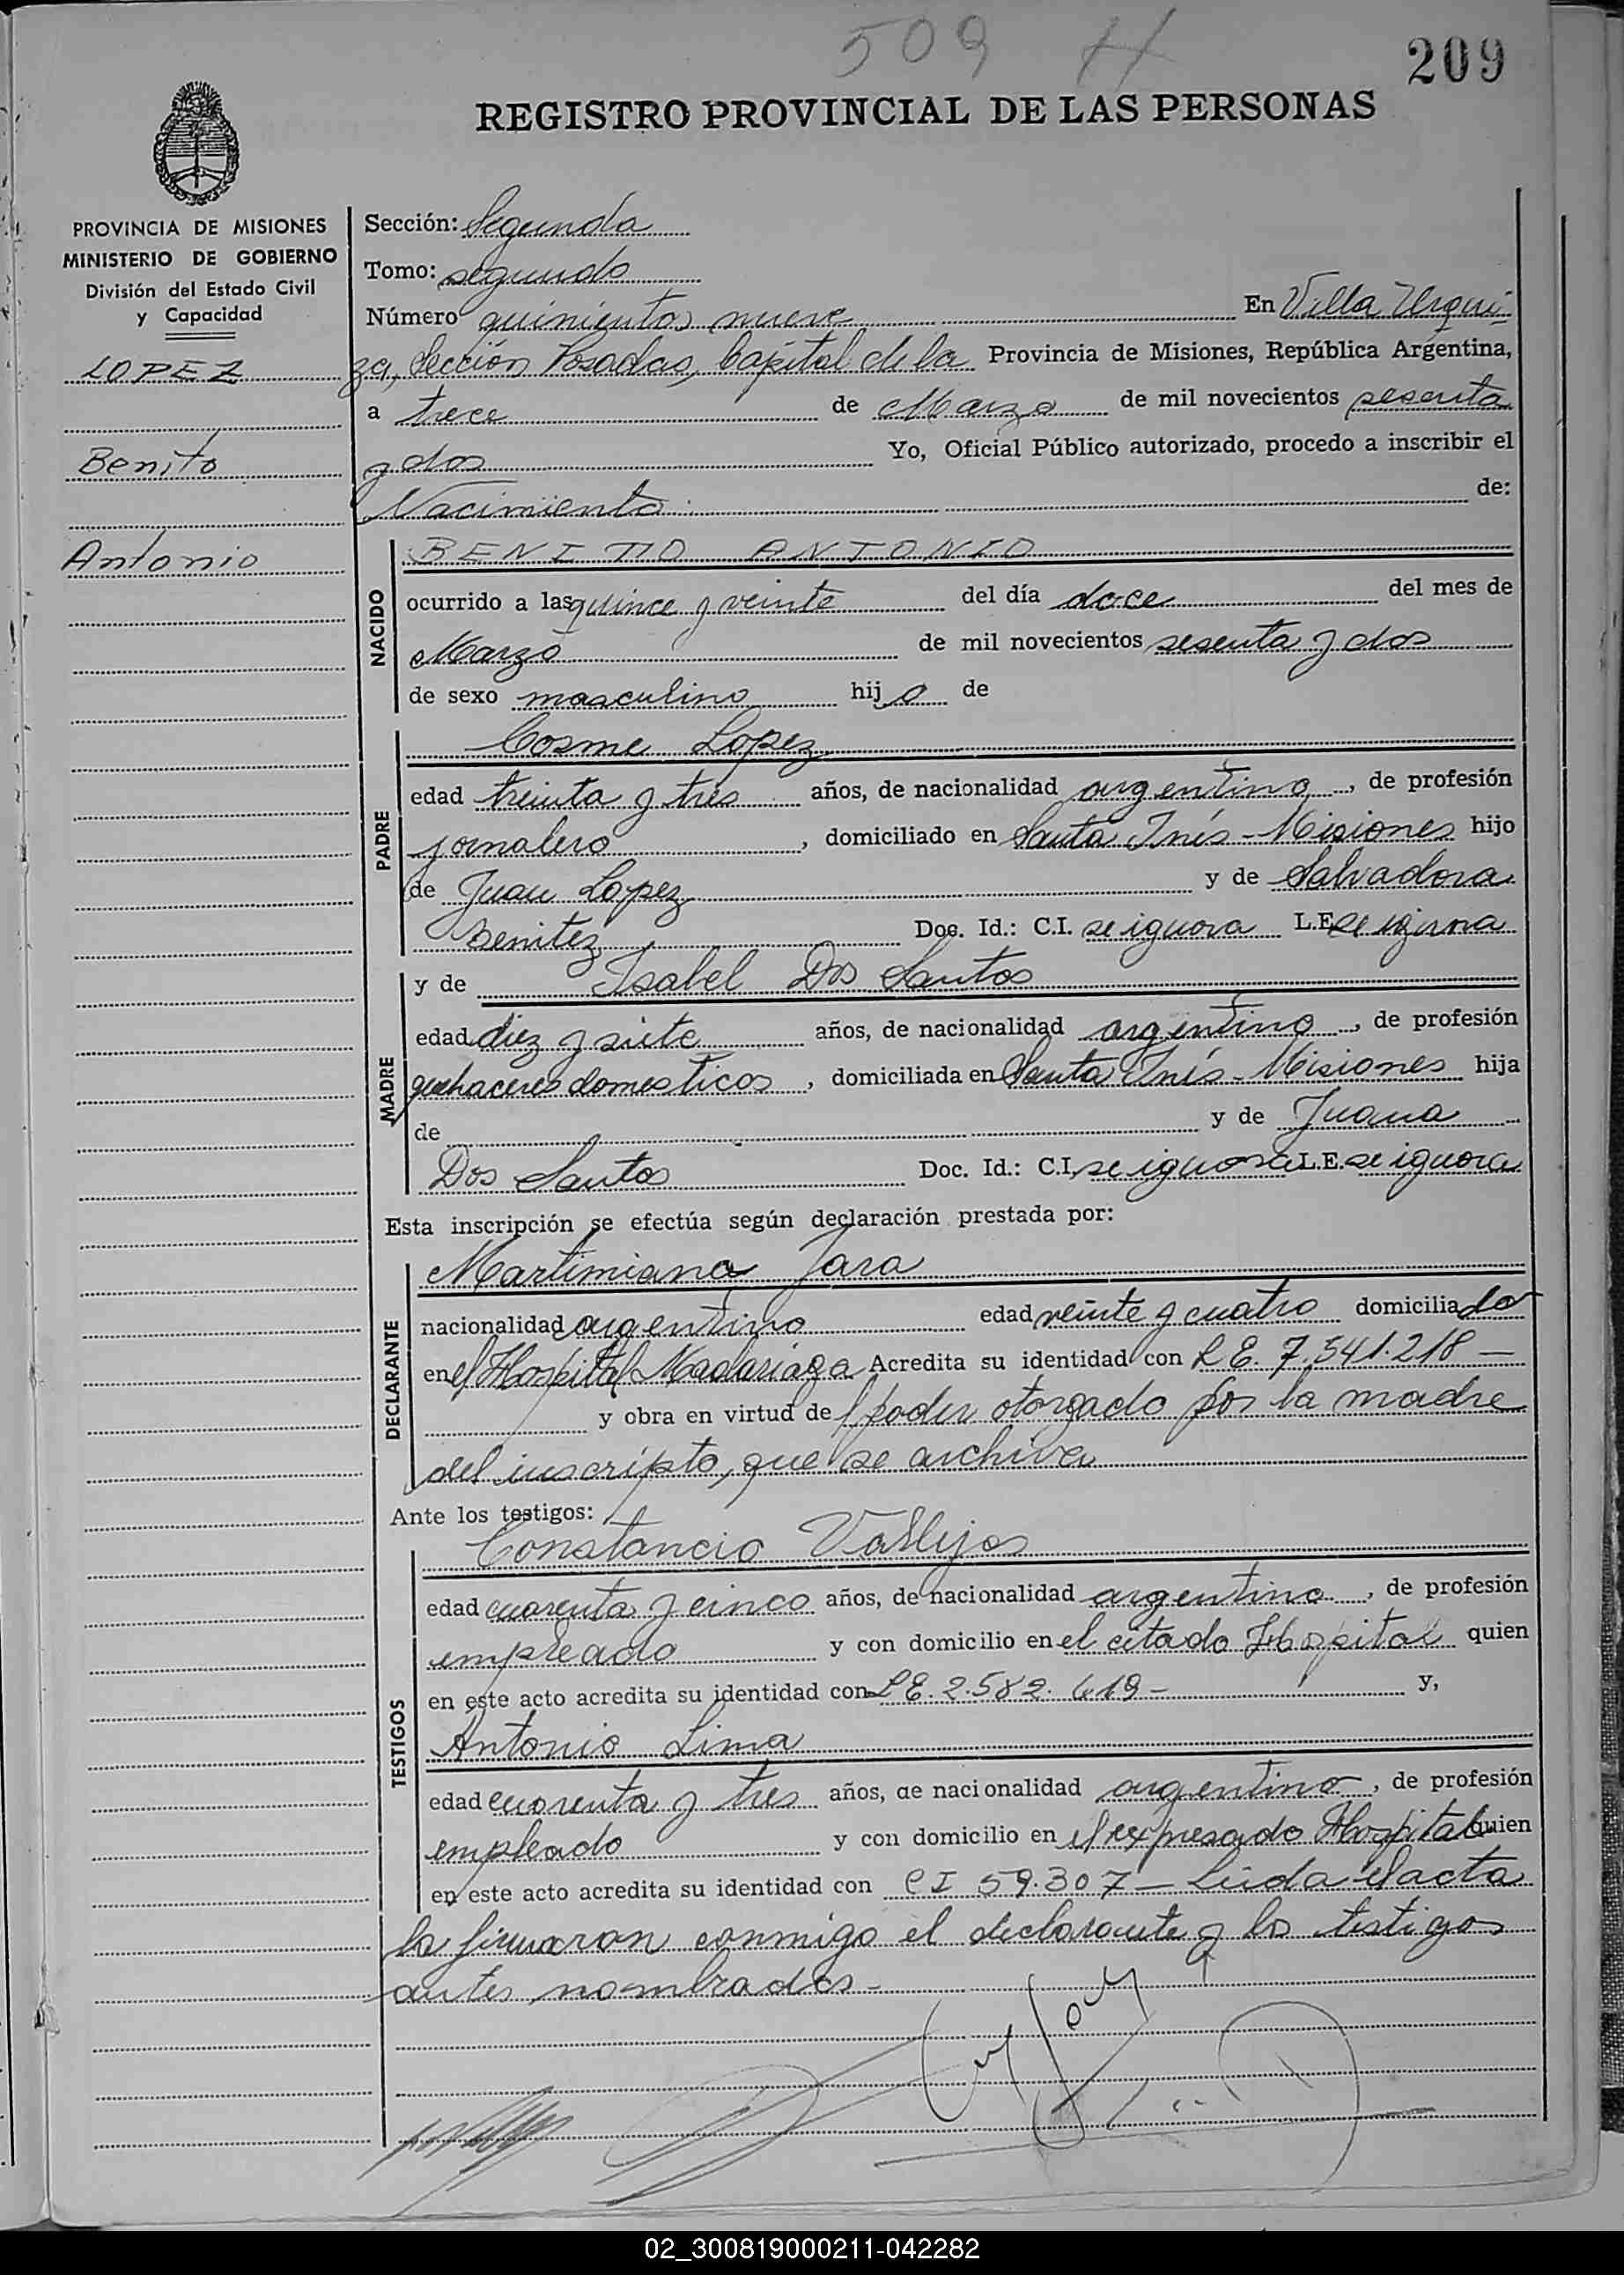 509 H
209
REGISTRO PROVINCIAL DE LAS PERSONAS
PROVINCIA DE MISIONES
MINISTERIO DE GOBIERNO
División del Estado Civil
y Capacidad
LOPEZ
Benito
Antonio
Sección: Segunda
Tomo: segundo
Número quinientos nueve En Villa Urqui-
za, Sección Posadas, Capital de la Provincia de Misiones, República Argentina,
a trece de Marzo de mil novecientos sesenta
y dos Yo, Oficial Público autorizado, procedo a inscribir el
Nacimiento de:
NACIDO
BENITO ANTONIO
ocurrido a las quince y veinte del día doce del mes de
Marzo de mil novecientos sesenta y dos
de sexo masculino hijo de
PADRE
Cosme Lopez
edad treinta y tres años, de nacionalidad argentino, de profesión
jornalero, domiciliado en Santa Inés - Misiones hijo
de Juan Lopez y de Salvadora
Benitez Doc. Id.: C.I. se ignora L.E. se ignora
MADRE
y de Isabel Dos Santos
edad diez y siete años, de nacionalidad argentino, de profesión
quehaceres domesticos, domiciliada en Santa Inés - Misiones hija
de y de Juana
Dos Santos Doc. Id.: C.I. se ignora L.E. se ignora
Esta inscripción se efectúa según declaración prestada por:
DECLARANTE
Martimiano Jara
nacionalidad argentino edad veinte y cuatro domiciliado
en el Hospital Madariaga Acredita su identidad con L E. 7.541.218 —
y obra en virtud del poder otorgado por la madre
del inscripto, que se archiva
Ante los testigos:
TESTIGOS
Constancio Vallejos
edad cuarenta y cinco años, de nacionalidad argentino, de profesión
empleado y con domicilio en el citado Hospital quien
en este acto acredita su identidad con L E. 2.582.619 - y,
Antonio Lima
edad cuarenta y tres años, de nacionalidad argentino, de profesión
empleado y con domicilio en el expresado Hospital quien
en este acto acredita su identidad con C I 59.307 — Leída el acta
la firmaron conmigo el declarante y los testigos
antes nombrados -
02_300819000211-042282